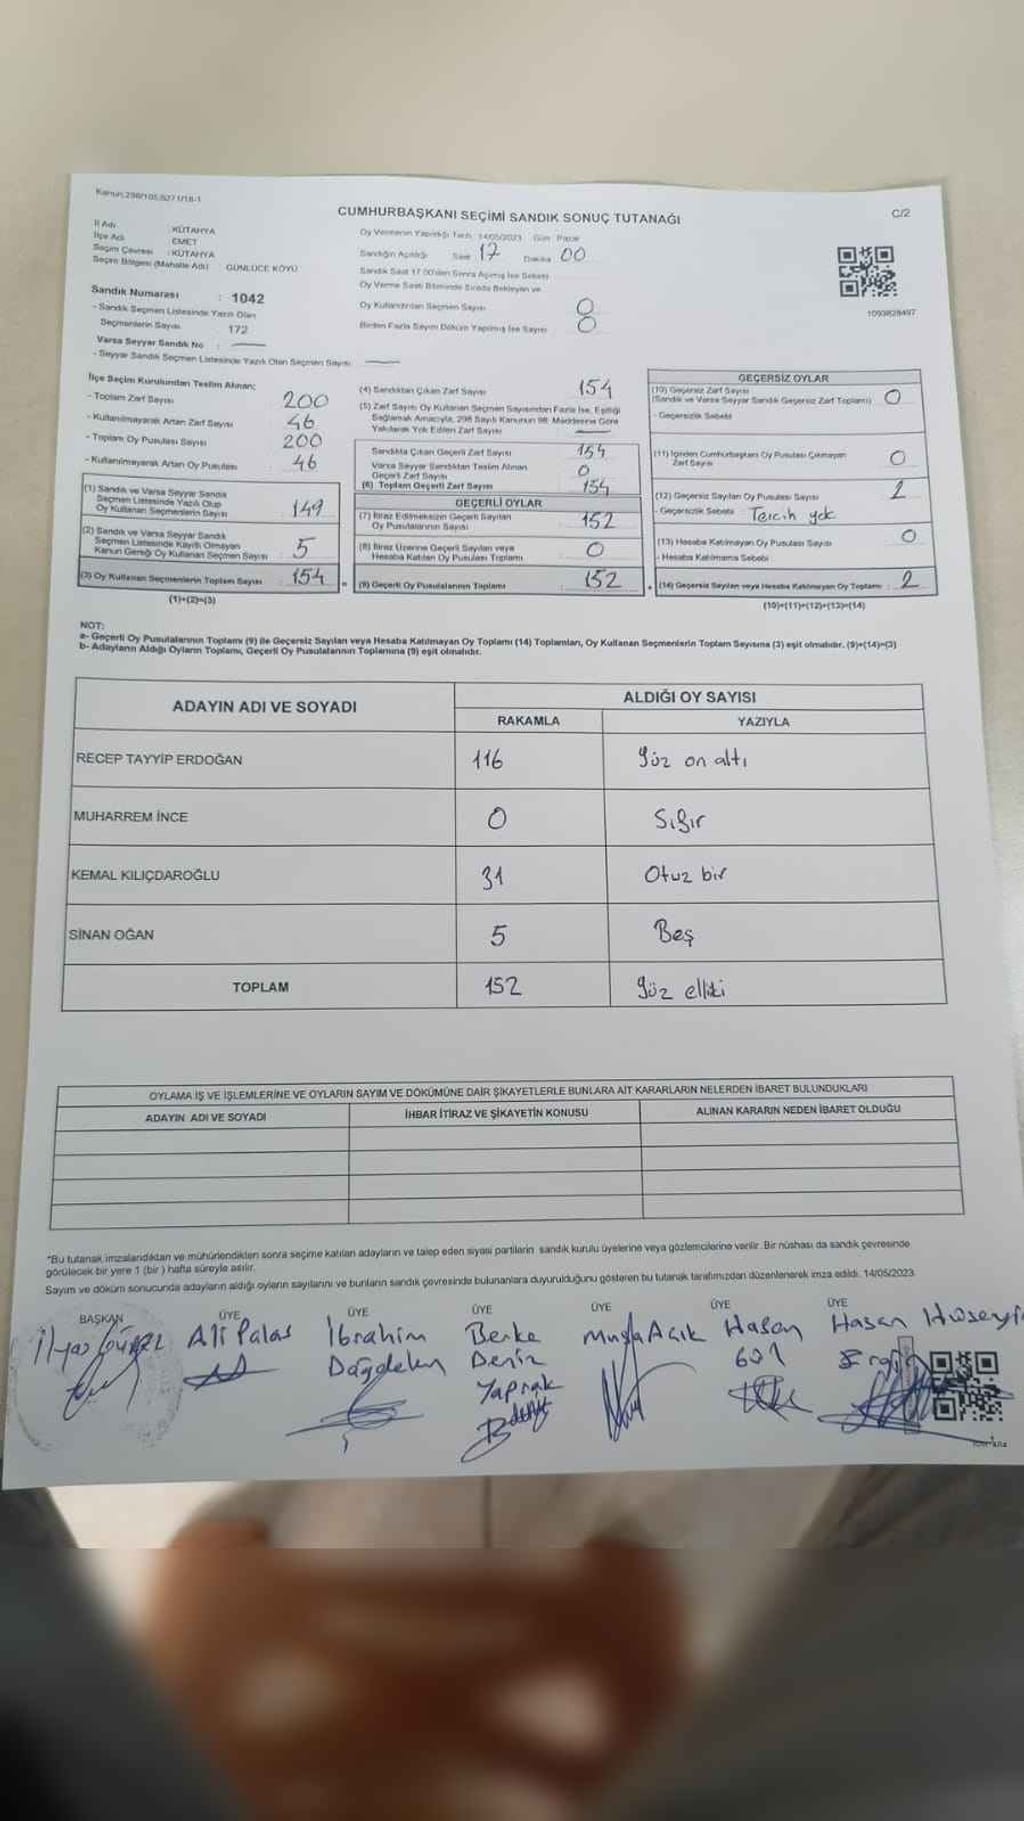 Kanun:298/105,6271/18-1
CUMHURBAŞKANI SEÇİMİ SANDIK SONUÇ TUTANAĞI
C/2
İl Adı : KÜTAHYA
İlçe Adı : EMET
Seçim Çevresi : KÜTAHYA
Seçim Bölgesi (Mahalle Adı) : GÜNLÜCE KÖYÜ
Sandık Numarası : 1042
- Sandık Seçmen Listesinde Yazılı Olan
Seçmenlerin Sayısı 172
Varsa Seyyar Sandık No :
- Seyyar Sandık Seçmen Listesinde Yazılı Olan Seçmen Sayısı
Oy Vermenin Yapıldığı Tarih 14/05/2023 Gün Pazar
Sandığın Açıldığı Saat 17 Dakika 00
Sandık Saat 17.00'den Sonra Açılmış İse Sebebi
Oy Verme Saati Bitiminde Sırada Bekleyen ve
Oy Kullandırılan Seçmen Sayısı 0
Birden Fazla Sayım Döküm Yapılmış İse Sayısı 0
1093828497
İlçe Seçim Kurulundan Teslim Alınan;
- Toplam Zarf Sayısı 200
- Kullanılmayarak Artan Zarf Sayısı 46
- Toplam Oy Pusulası Sayısı 200
- Kullanılmayarak Artan Oy Pusulası 46
(1) Sandık ve Varsa Seyyar Sandık
Seçmen Listesinde Yazılı Olup
Oy Kullanan Seçmenlerin Sayısı 149
(2) Sandık ve Varsa Seyyar Sandık
Seçmen Listesinde Kayıtlı Olmayan
Kanun Gereği Oy Kullanan Seçmen Sayısı 5
(3) Oy Kullanan Seçmenlerin Toplam Sayısı 154
(1)+(2)=(3)
(4) Sandıktan Çıkan Zarf Sayısı 154
(5) Zarf Sayısı Oy Kullanan Seçmen Sayısından Fazla İse, Eşitliği
Sağlamak Amacıyla, 298 Sayılı Kanunun 98. Maddesine Göre
Yakılarak Yok Edilen Zarf Sayısı
Sandıkta Çıkan Geçerli Zarf Sayısı 154
Varsa Seyyar Sandıktan Teslim Alınan
Geçerli Zarf Sayısı 0
(6) Toplam Geçerli Zarf Sayısı 154
GEÇERLİ OYLAR
(7) İtiraz Edilmeksizin Geçerli Sayılan
Oy Pusulalarının Sayısı 152
(8) İtiraz Üzerine Geçerli Sayılan veya
Hesaba Katılan Oy Pusulası Toplamı 0
(9) Geçerli Oy Pusulalarının Toplamı 152
GEÇERSİZ OYLAR
(10) Geçersiz Zarf Sayısı
(Sandık ve Varsa Seyyar Sandık Geçersiz Zarf Toplamı) 0
- Geçersizlik Sebebi
(11) İçinden Cumhurbaşkanı Oy Pusulası Çıkmayan
Zarf Sayısı 0
(12) Geçersiz Sayılan Oy Pusulası Sayısı 2
- Geçersizlik Sebebi Tercih yok
(13) Hesaba Katılmayan Oy Pusulası Sayısı 0
- Hesaba Katılmama Sebebi
(14) Geçersiz Sayılan veya Hesaba Katılmayan Oy Toplamı : 2
(10)+(11)+(12)+(13)=(14)
NOT:
a- Geçerli Oy Pusulalarının Toplamı (9) ile Geçersiz Sayılan veya Hesaba Katılmayan Oy Toplamı (14) Toplamları, Oy Kullanan Seçmenlerin Toplam Sayısına (3) eşit olmalıdır. (9)+(14)=(3)
b- Adayların Aldığı Oyların Toplamı, Geçerli Oy Pusulalarının Toplamına (9) eşit olmalıdır.
ADAYIN ADI VE SOYADI ALDIĞI OY SAYISI
RAKAMLA YAZIYLA
RECEP TAYYİP ERDOĞAN 116 yüz on altı
MUHARREM İNCE 0 Sıfır
KEMAL KILIÇDAROĞLU 31 Otuz bir
SİNAN OĞAN 5 Beş
TOPLAM 152 yüz elliki
OYLAMA İŞ VE İŞLEMLERİNE VE OYLARIN SAYIM VE DÖKÜMÜNE DAİR ŞİKAYETLERLE BUNLARA AİT KARARLARIN NELERDEN İBARET BULUNDUKLARI
ADAYIN ADI VE SOYADI İHBAR İTİRAZ VE ŞİKAYETİN KONUSU ALINAN KARARIN NEDEN İBARET OLDUĞU
*Bu tutanak imzalandıktan ve mühürlendikten sonra seçime katılan adayların ve talep eden siyasi partilerin sandık kurulu üyelerine veya gözlemcilerine verilir. Bir nüshası da sandık çevresinde
görülecek bir yere 1 (bir) hafta süreyle asılır.
Sayım ve döküm sonucunda adayların aldığı oyların sayılarını ve bunların sandık çevresinde bulunanlara duyurulduğunu gösteren bu tutanak tarafımızdan düzenlenerek imza edildi. 14/05/2023
BAŞKAN ÜYE ÜYE ÜYE ÜYE ÜYE ÜYE
İlyas Ali Palas İbrahim Dağdelen Berke Deniz Yaprak Musfa Açık Hasan Hasan Hüseyin